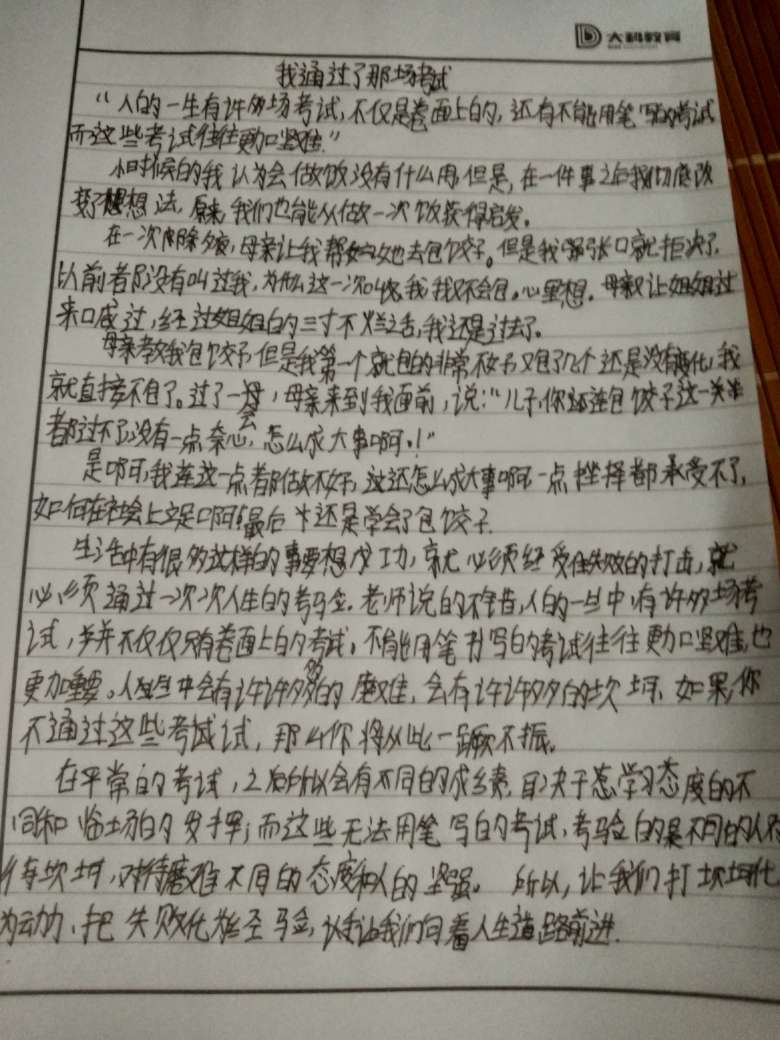 大科教育
我通过了那场考试
“人的一生有许多场考试，不仅是卷面上的，还有不能用笔写的考试
而这些考试往往更加坚难。”
小时候的我认为会做饭没有什么用，但是，在一件事之后我彻底改
变了想法，原来，我们也能从做一次饭获得启发。
在一次除夕夜，母亲让我帮她去包饺子。但是我张口就拒决了，
以前都没有叫过我，为什么这一次叫我，我又不会包。心里想。母亲又让姐姐过
来口感过，经过姐姐的三寸不烂之舌，我还是过去了。
母亲教我包饺子，但是我第一个就包的非常不好，又包了几个还是没有变化，我
就直接不包了。过了一会，母亲来到我面前，说：“儿子，你连包饺子这一关
都过不了，没有一点奈心，怎么成大事啊！”
是啊，我连这一点都做不好，这还怎么成大事啊，一点挫择都承受不了，
如何在社会上立足啊！最后还是学会了包饺子。
生活中有很多这样的事，要想成功，就必须经受住失败的打击，就
必须通过一次次人生的考验。老师说的不错，人的一生中，有许多场考
试，并不仅仅只有卷面上的考试。不能用笔书写的考试往往更加坚难，也
更加重要。人生中会有许许多多的磨难，会有许许多多的坎坷，如果你
不通过这些考试，那么你将从此一蹶不振。
在平常的考试，之后所以会有不同的成绩，取决于学习态度的不
同和临场的发挥；而这些无法用笔写的考试，考验的是不同的人对
待坎坷，对待磨难不同的态度和人的坚强。所以，让我们打坎坷化
为动力，把失败化为经验，让我们向着人生道路前进。